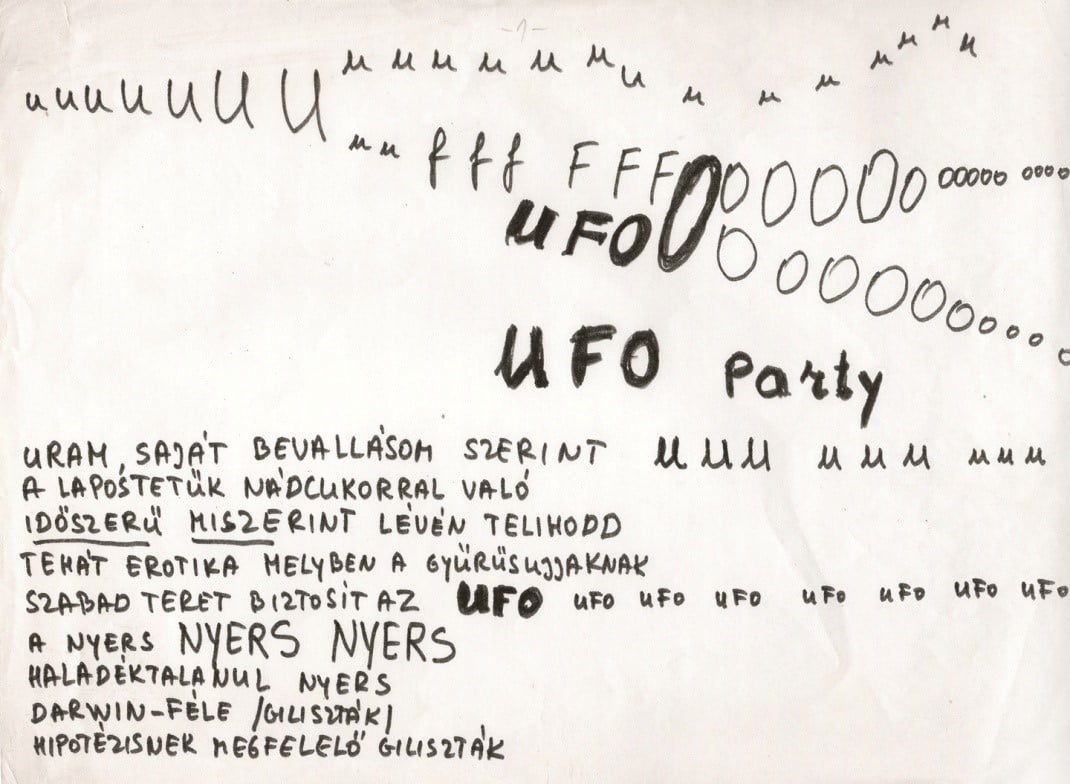 -1-
u u u u U U U U u u u u u u u u u u u u u u
u u f f f F F F O O O O O o o o o o o o o o o
UFO O O o O O O o o o o o
UFO Party
URAM, SAJÁT BEVALLÁSOM SZERINT U U U u u u u u u
A LAPOSTETŰK NÁDCUKORRAL VALÓ
IDŐSZERŰ MISZERINT LÉVÉN TELIHODD
TEHÁT EROTIKA MELYBEN A GYŰRŰSUJJAKNAK
SZABAD TERET BIZTOSIT AZ UFO UFO UFO UFO UFO UFO UFO UFO
A NYERS NYERS NYERS
HALADÉKTALANUL NYERS
DARWIN-FÉLE /GILISZTÁK/
HIPOTÉZISNEK MEGFELELŐ GILISZTÁK